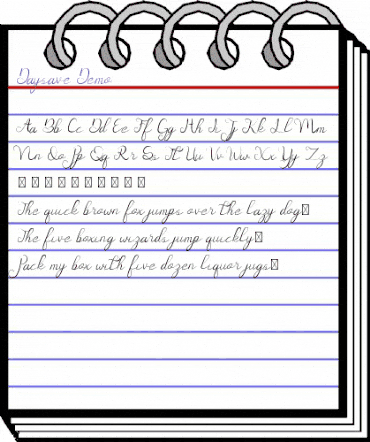 Daysave Demo
Aa Bb Cc Dd Ee Ff Gg Hh Ii Jj Kk Ll Mm
Nn Oo Pp Qq Rr Ss Tt Uu Vv Ww Xx Yy Zz
▯ ▯ ▯ ▯ ▯ ▯ ▯ ▯ ▯ ▯
The quick brown fox jumps over the lazy dog▯
The five boxing wizards jump quickly▯
Pack my box with five dozen liquor jugs▯